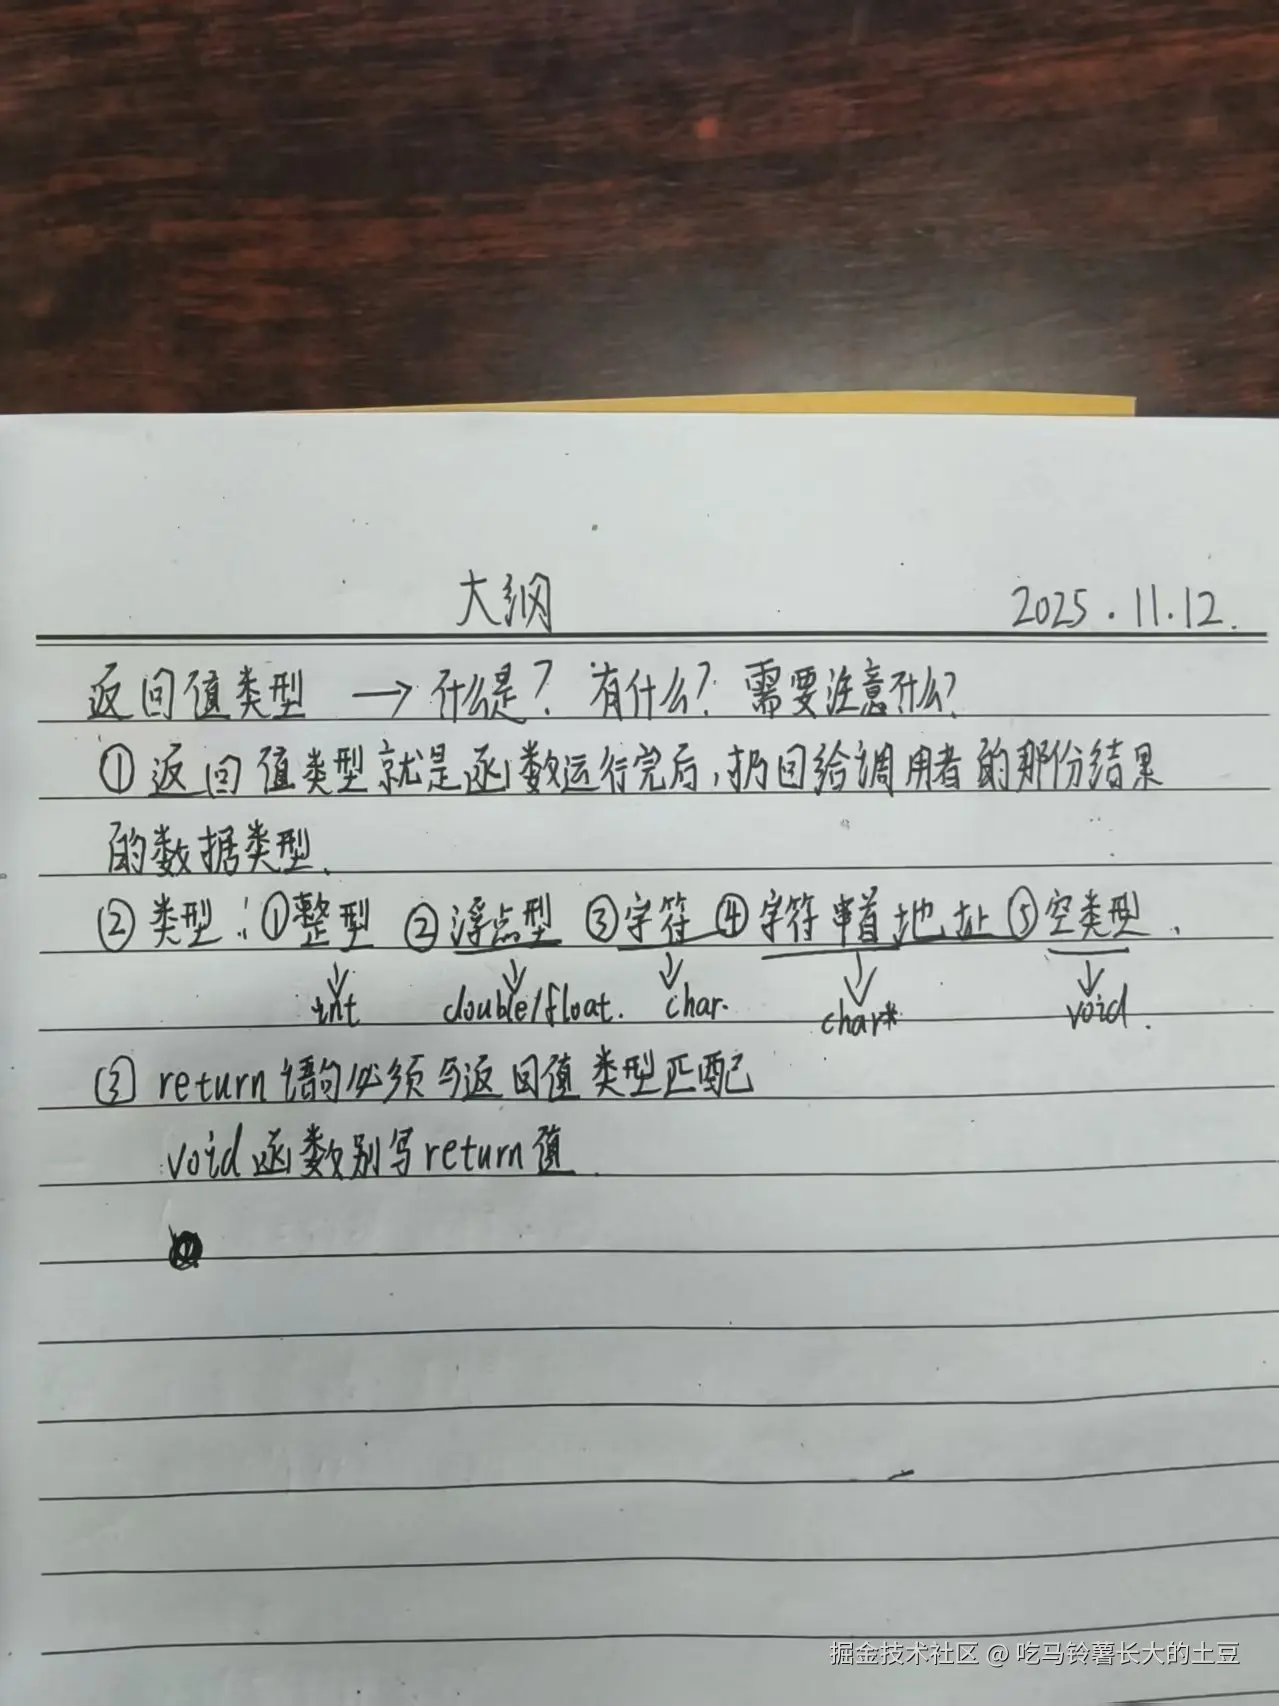 大纲 2025.11.12.
返回值类型 → 什么是? 有什么? 需要注意什么?
① 返回值类型就是函数运行完后,扔回给调用者的那份结果
的数据类型.
② 类型: ①整型 ②浮点型 ③字符 ④字符串首地址 ⑤空类型.
int double/float. char. char* void.
③ return语句必须与返回值类型匹配
void函数别写return值.
掘金技术社区 @ 吃马铃薯长大的土豆